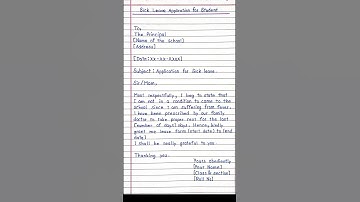 Sick Leave Application for Student
To,
The Principal
[Name of the School]
[Address]
[Date: xx-xx-xxxx]
Subject: Application for Sick leave.
Sir/Mam,
Most respectfully, I beg to state that
I am not in a condition to come to the
school since I am suffering from fever.
I have been prescribed by our family
doctor to take proper rest for the last
[number of days] days. Hence, kindly
grant me leave form [start date] to [end
date]
I shall be really grateful to you.
Thanking you.
Yours obediently
[Your Name]
[Class & section]
[Roll No]